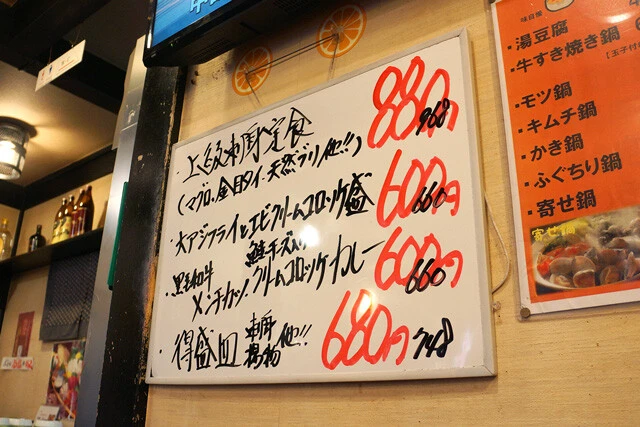 ・上級刺身定食 880円 968
(マグロ、金目タイ、天然ブリ他!!)
・大アジフライとエビクリームコロッケ盛 600円 660
鮭チーズ入り
・黒毛和牛メンチカツ、クリームコロッケカレー 600円 660
・得盛皿 刺身 揚物 他!! 680円 748
味豆腐
・湯豆腐
・牛すき焼き鍋
[玉子付
・モツ鍋
・キムチ鍋
・かき鍋
・ふぐちり鍋
・寄せ鍋
寄せ鍋